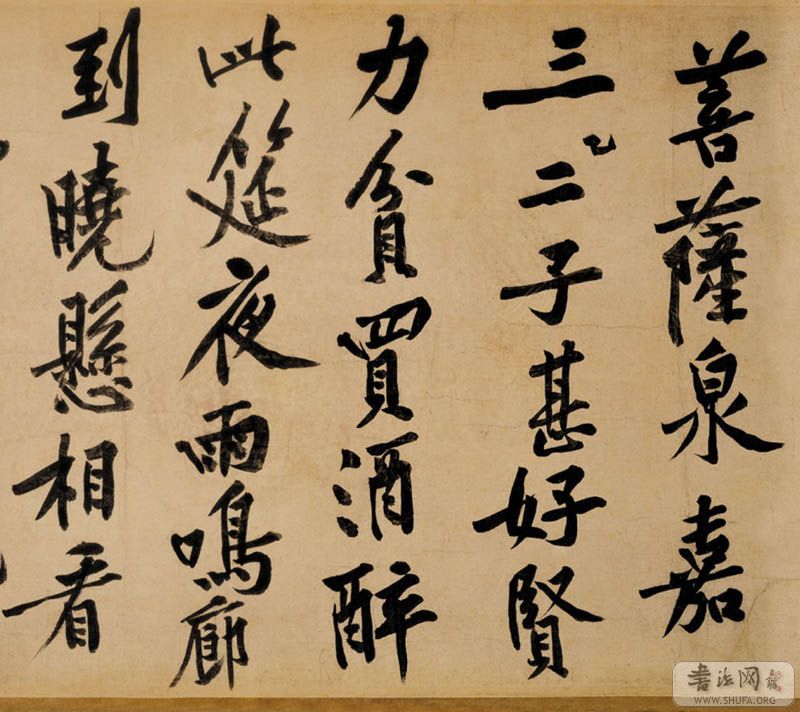 菩薩泉嘉
三二子甚好賢
力貧買酒醉
此筵夜雨鳴廊
到曉懸相看
書法网
WWW.SHUFA.ORG